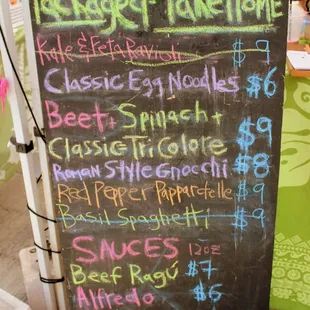 Packaged - Take Home
Kale & Feta Ravioli $9
Classic Egg Noodles $6
Beet + Spinach +
Classic Tricolore $9
Roman Style Gnocchi $8
Red Pepper Pappardelle $9
Basil Spaghetti $9
SAUCES 12oz
Beef Ragú $7
Alfredo $6